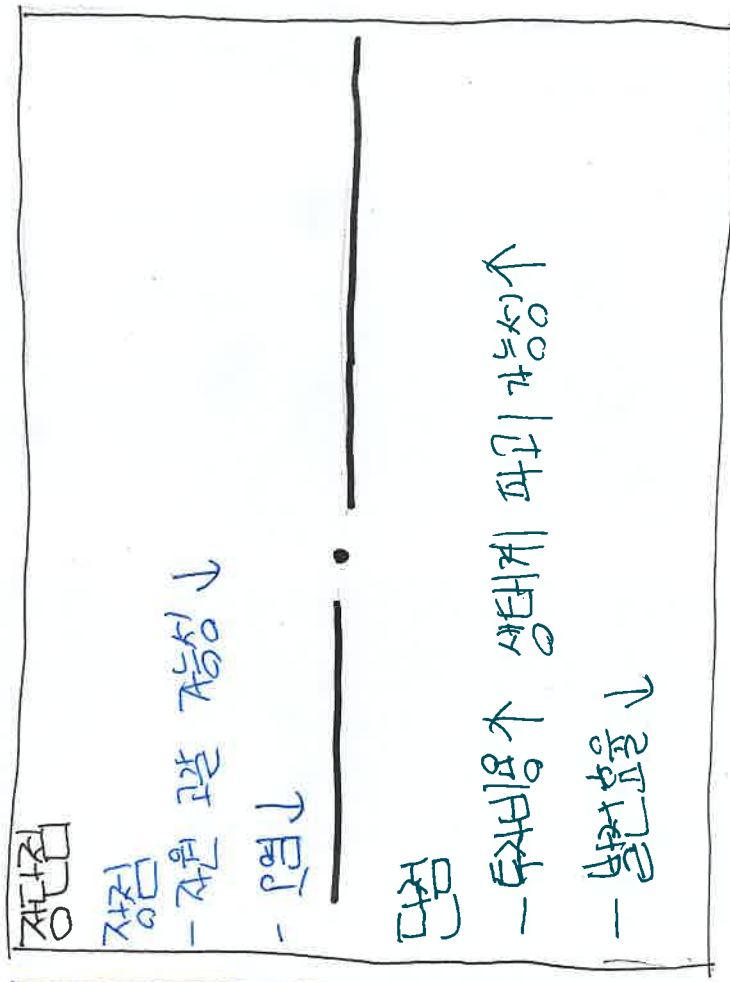 장단점
장점
- 자원 고갈 가능성 ↓
- 오염 ↓
단점
- 투자비용 ↑ 생태계 파괴 가능성 ↑
- 발전효율 ↓